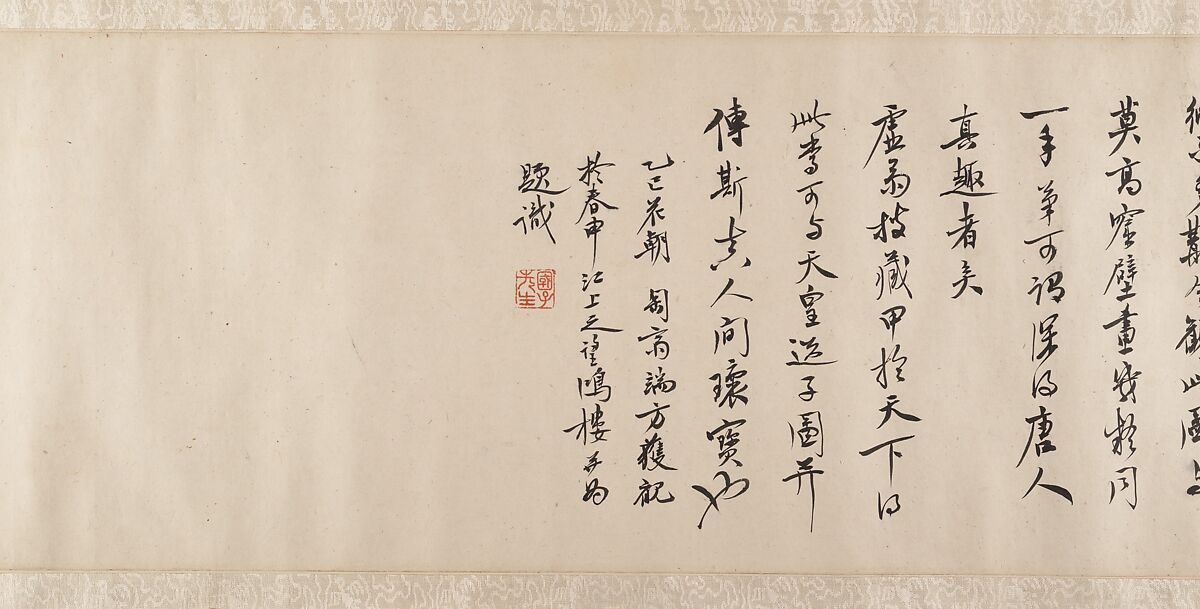 觀此圖與
莫高窟壁畫幾疑同
一手筆可謂深得唐人
真趣者矣
虛齋收藏甲於天下得
此當可与天皇送子圖并
傳斯真人间瓌寶也
乙巳花朝 匋齋端方獲觀
於春申江上之望鴻樓并為
題識